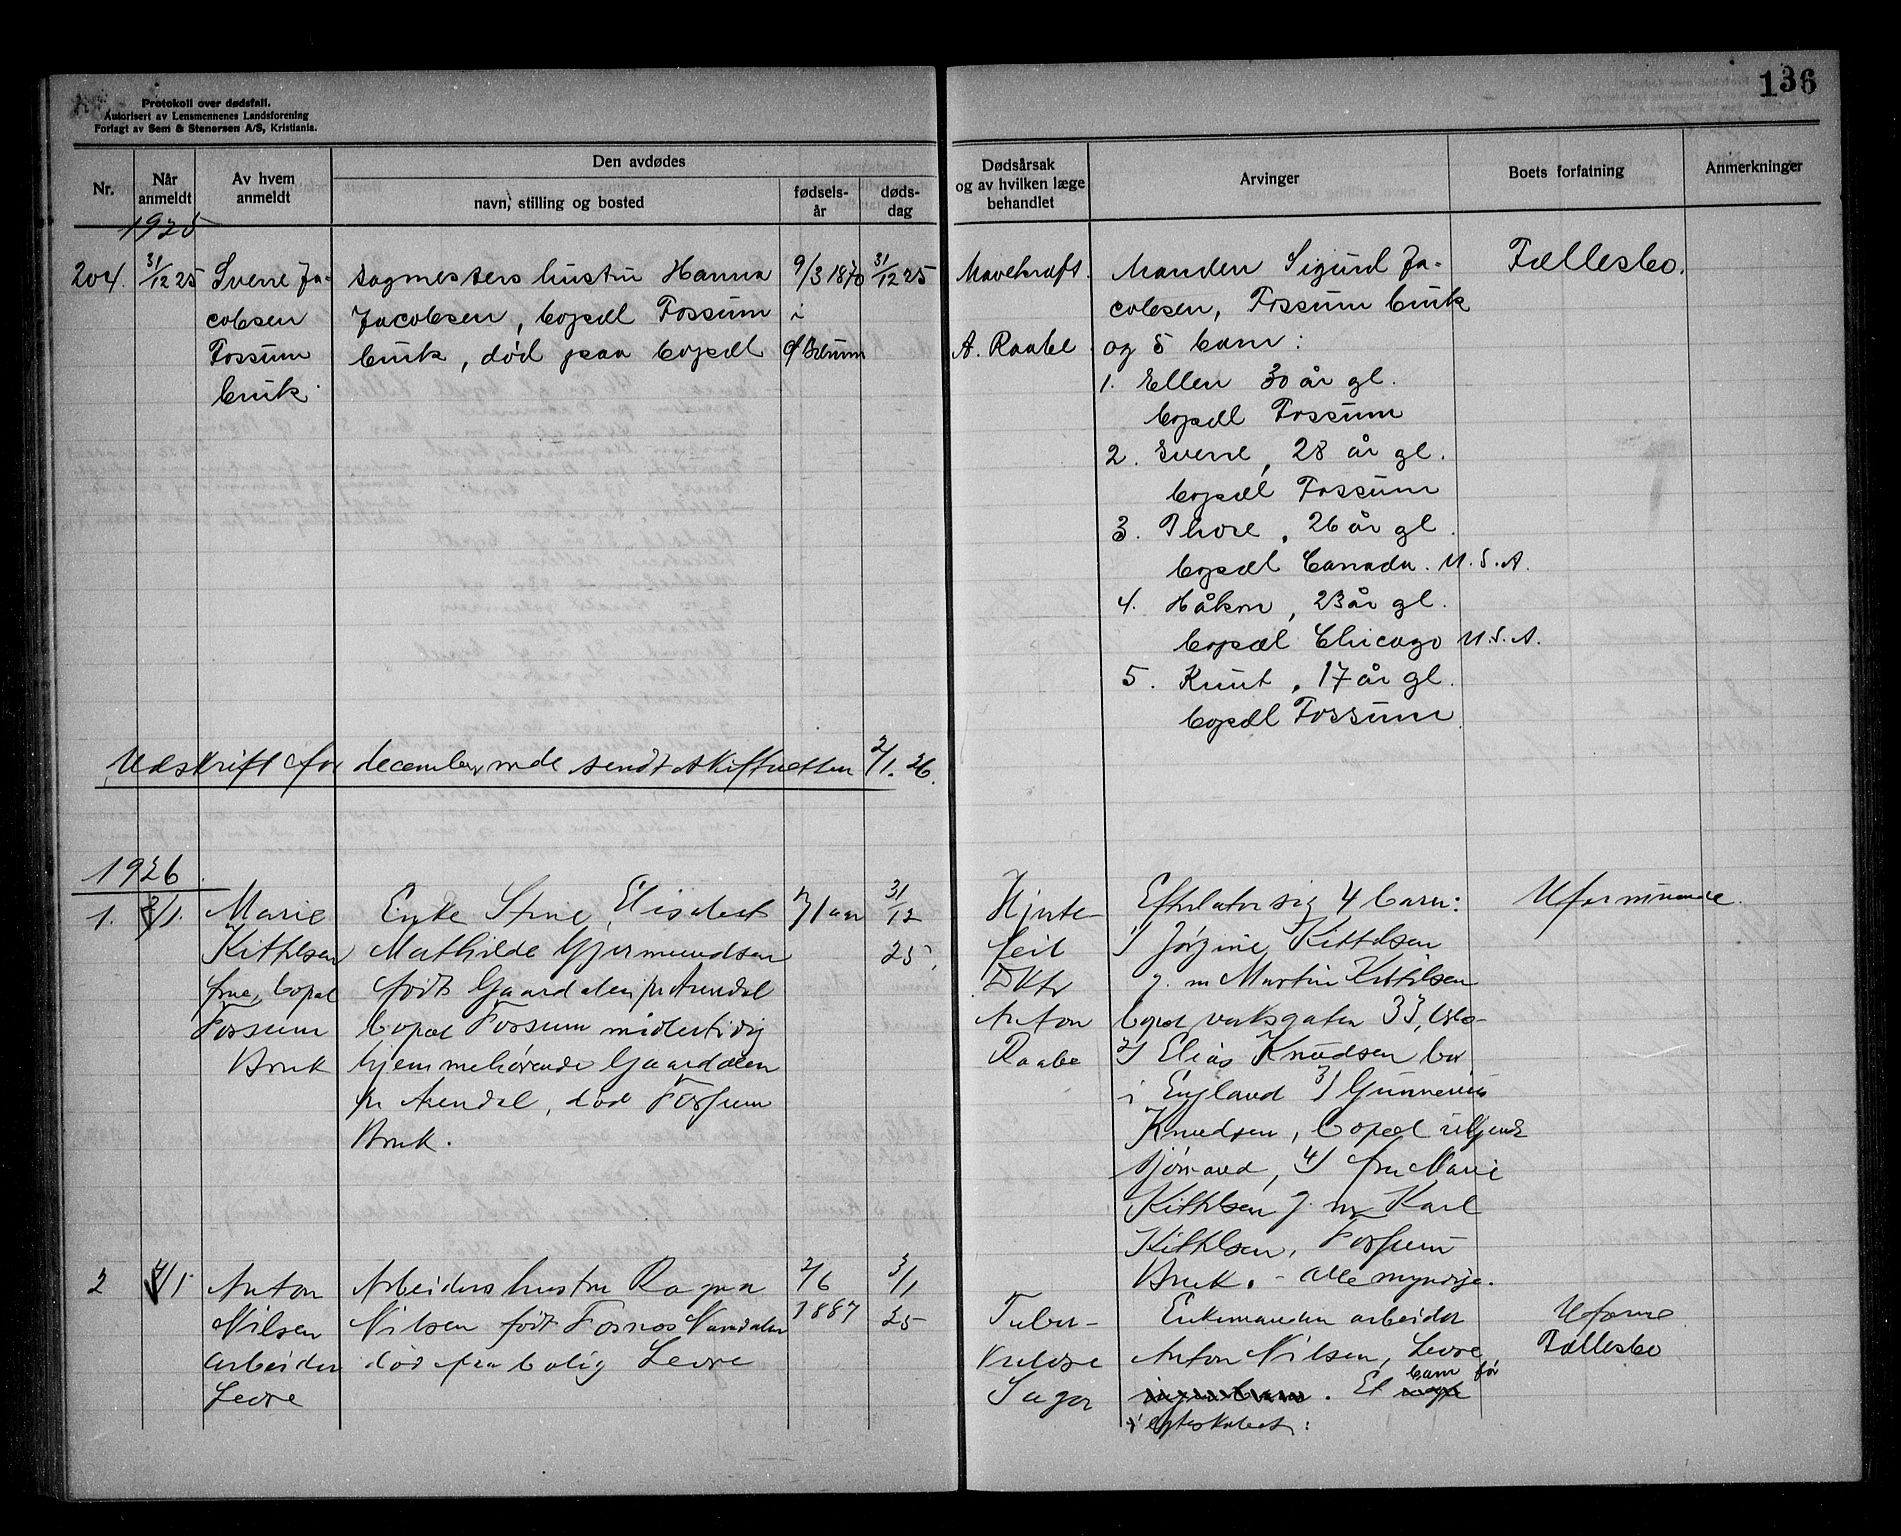 136
Protokoll over dødsfall.
Autorisert av Lensmennenes Landsforening
Forlagt av Sem & Stenersen A/S, Kristiania.
Nr.
Når anmeldt
Av hvem anmeldt
Den avdødes
navn, stilling og bosted
fødsels-år
døds-dag
Dødsårsak og av hvilken læge behandlet
Arvinger
Boets forfatning
Anmerkninger
1925
204.
31/12 25
Sverre Ja-
cobsen
Fossum
bruk.
sagmesters hustru Hanna
Jacobsen, bopæl Fossum
bruk, død paa bopæl
9/3 1870
i
Ø Bærum
31/12 25
Mavekræft.
A. Raabe
Manden Sigurd Ja-
cobsen, Fossum bruk
og 5 barn:
1. Ellen 30 år gl.
bopæl Fossum
2. Sverre, 28 år gl.
bopæl Fossum
3. Thore, 26 år gl.
bopæl Canada. U.S.A.
4. Håkon, 23 år gl.
bopæl Chicago U.S.A.
5. Knut, 17 år gl.
bopæl Fossum
Fællesbo.
Utskrift for december mde sendt skifteretten 2/1. 26.
1926
1.
2/1.
Marie
Kittilsen
frue, bopæl
Fossum
Bruk
Enke Stine Elisabet
Mathilde Gjermundsen
født Gaarddalen pr Arendal
bopæl Fossum midlertidig
hjemmehørende Gaarddalen
pr Arendal, død Fossum
Bruk.
71 aar
31/12
25.
Hjerte-
feil
Dktr
Anton
Raabe
Efterlater sig 4 barn:
1/ Jørgine Kittilsen
g. m Martin Kittilsen
bopæl verksgaten 33, Oslo
2/ Elias Knudsen bor
i England 3/ Gunnerius
Knudsen, bopæl
4/ fru Marie
Kittilsen g. m Karl
Kittilsen, Fossum
Bruk. - alle myndige.
Uformuende.
2
4/1
Anton
Nilsen
arbeider
Levre
Arbeiders hustru Ragna
Nilsen født Fosnes Namdalen
død paa bolig Levre
2/6
1887
3/1
25
Tuber-
kulose
Enkemanden arbeider
Anton Nilsen, Levre
ingen barn. Et barn før
egteskabet:
Uform
Fællesbo